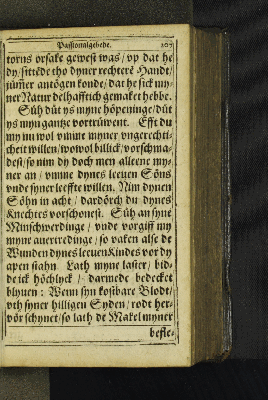 Passionalgebede. 207
torns orsake gewest was/ vp dat he
dy/ sittēde tho dyner rechterē Handt/
jümmer antögen konde/ dat he sick my-
ner Natur delhafftich gemaket hebbe.
Süh düt ys myne höpeninge/ düt
ys myn gantze vortrüwent. Efft du
my im wol vmme myner vngerechti-
cheit willen/ wowol billick/ vorschma-
dest/ so nim dy doch men alleene my-
ner an/ vmme dynes leeuen Söns
vnde syner leeffte willen. Nim dynen
Söhn in acht/ dardörch du dynes
Knechtes vorschonest. Süh an syne
Minschwerdinge/ vnde vorgiff my
myne auertredinge/ so vaken alse de
Wunden dynes leeuen Kindes vor dy
apen stahn. Lath myne laster/ bid-
de ick höchlyck/ darmede bedecket
blyuen: Wenn syn kostbare Blodt/
vth syner hilligen Syden/ rodt her-
vör schynet/ so lath de Makel myner
befle-